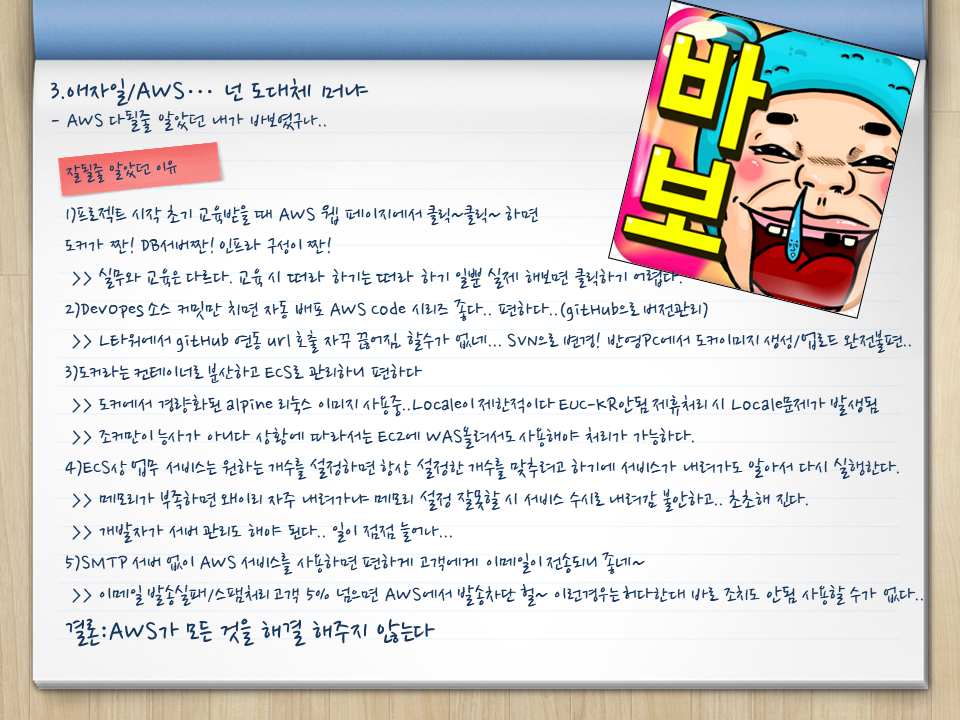 3.애자일/AWS... 넌 도대체 머냐
- AWS 다될줄 알았던 내가 바보였구나..
바보
잘될줄 알았던 이유
1)프로젝트 시작 초기 교육받을 때 AWS 웹 페이지에서 클릭~클릭~ 하면
도커가 짠! DB서버짠! 인프라 구성이 짠!
>> 실무와 교육은 다르다. 교육 시 떠라 하기는 떠라 하기 일뿐 실제 해보면 클릭하기 어렵다.
2)Devopes소스 커밋만 치면 자동 배포 AWS code 시리즈 좋다.. 편하다..(gitHub으로 버전관리)
>> L타워에서 gitHub 연동 url 호출 자꾸 끊어짐. 할수가 없네... SVN으로 변경! 반영PC에서 도커이미지 생성/업로드 완전불편..
3)도커라는 컨테이너로 분산하고 ECS로 관리하니 편하다
>> 도커에서 경량화된 alpine 리눅스 이미지 사용중..Locale이 제한적이다 EUC-KR안됨 제휴처리 시 Locale문제가 발생됨
>> 조커만이 능사가 아니다 상황에 따라서는 EC2에 WAS올려서도 사용해야 처리가 가능하다.
4)ECS상 업무 서비스는 원하는 개수를 설정하면 항상 설정한 개수를 맞추려고 하기에 서비스가 내려가도 알아서 다시 실행한다.
>> 메모리가 부족하면 왜이리 자주 내려가냐 메모리 설정 잘못할 시 서비스 수시로 내려감 불안하고.. 초초해 진다.
>> 개발자가 서버 관리도 해야 된다.. 일이 점점 늘어나...
5)SMTP 서버 없이 AWS 서비스를 사용하면 편하게 고객에게 이메일이 전송되니 좋네~
>> 이메일 발송실패/스팸처리 고객 5% 넘으면 AWS에서 발송차단 헐~ 이런경우는허다한대 바로 조치도 안됨 사용할 수가 없다..
결론:AWS가 모든 것을 해결 해주지 않는다